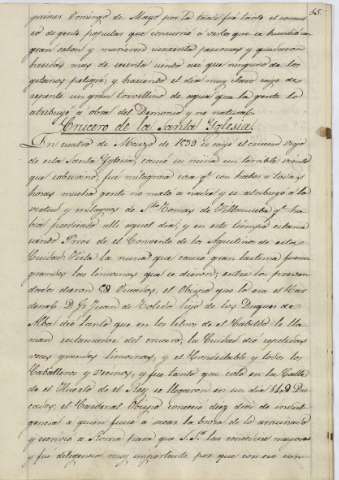 45
primer Domingo de Mayo por la tarde fue tanto el concur
so de gente popular que concurrió a verlo que se hundió un
gran salon y murieron cincuenta personas y quedaron
heridas mas de ciento siendo asi que ninguno de los
gitanos peligró, y haciendo el dia muy claro cayó de
repente un gran torvellino de agua que la gente lo
atribuyó a obra del Demonio y no natural.
Crucero de la Santa Yglesia
En cuatro de Marzo de 1539 se cayó el crucero viejo
de esta Santa Yglesia, causó su ruina un terrible viento
que sobrevino, fue milagroso con qe con haber a todas
horas mucha gente no mató a nadie y se atribuyó a la
virtud y milagros de Sto Tomas de Villanueva qe ha
bia predicado alli aquel dia, y en este tiempo estaba
siendo Prior de el Convento de la Agustina de esta
Ciudad. Vista la ruina que causó gran lastima fueron
grandes las limosnas que se dieron; entre los preven
dados dieron Ducados, el Obispo que lo era el Car
denal D. Fr. Juan de Toledo hijo de los Duques de
Alba dió tanto que en los libros de el Cabildo le lla
man restaurador del crucero, la Ciudad dió repetidas
veces grandes limosnas, y el Condestable y todos los
Caballeros y vecinos, y fue tanto que solo en la Calle
de el Huerto de el Rey se llegaron en un dia Du
cados, el Cardenal Obispo concedió diez dias de indul
gencia a quien fuese a sacar la tierra de lo arruinado
y escribió a Roma para que S.S. las concediese mayores
y fue diligencia muy importante por que con eso con-